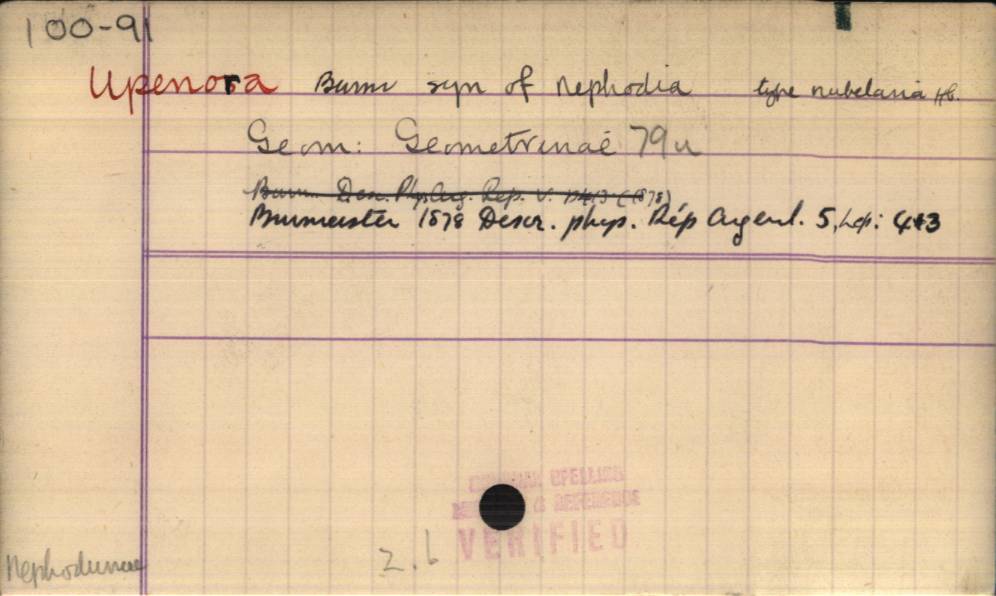 100-91
Upenora Burm syn of Nephodia type nubelaria Hb.
Geom: Geometrinae 79u
Burm. Desc. Phys. Arg. Rep. V. p413 (1878)
Burmeister 1878 Descr. phys. Rép Argent. 5, Lep: 413
ORIGINAL SPELLING
& REFERENCE
VERIFIED
2.b
Nephodiinae